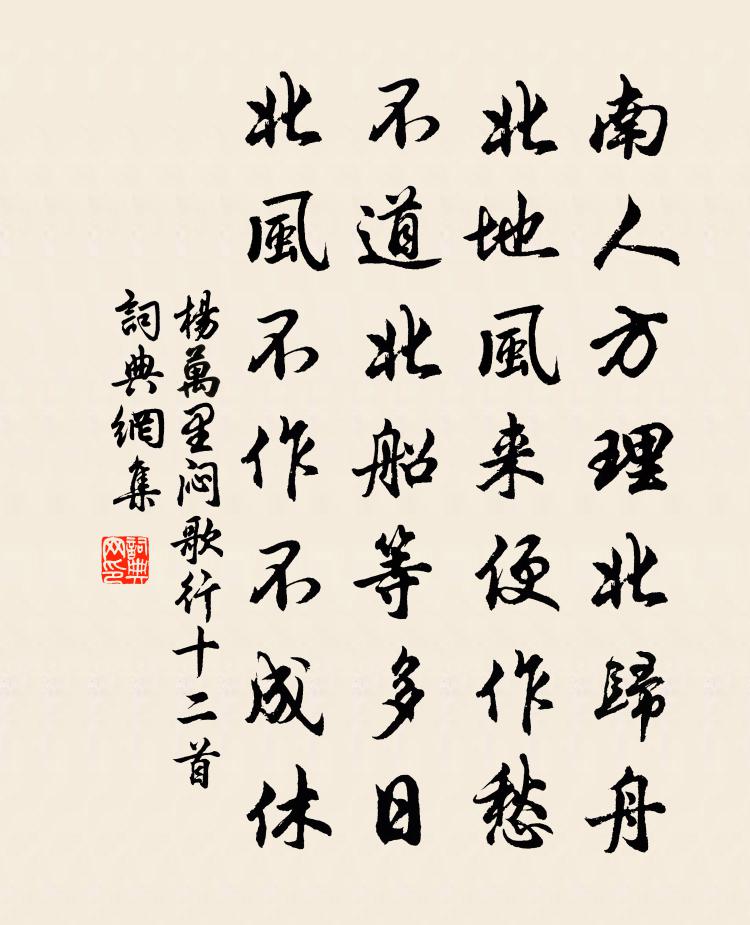 南人方理北歸舟
北地風来便作愁
不道北船等多日
北風不作不成休
楊萬里闷歌行十二首
詞典網集
詞典網印